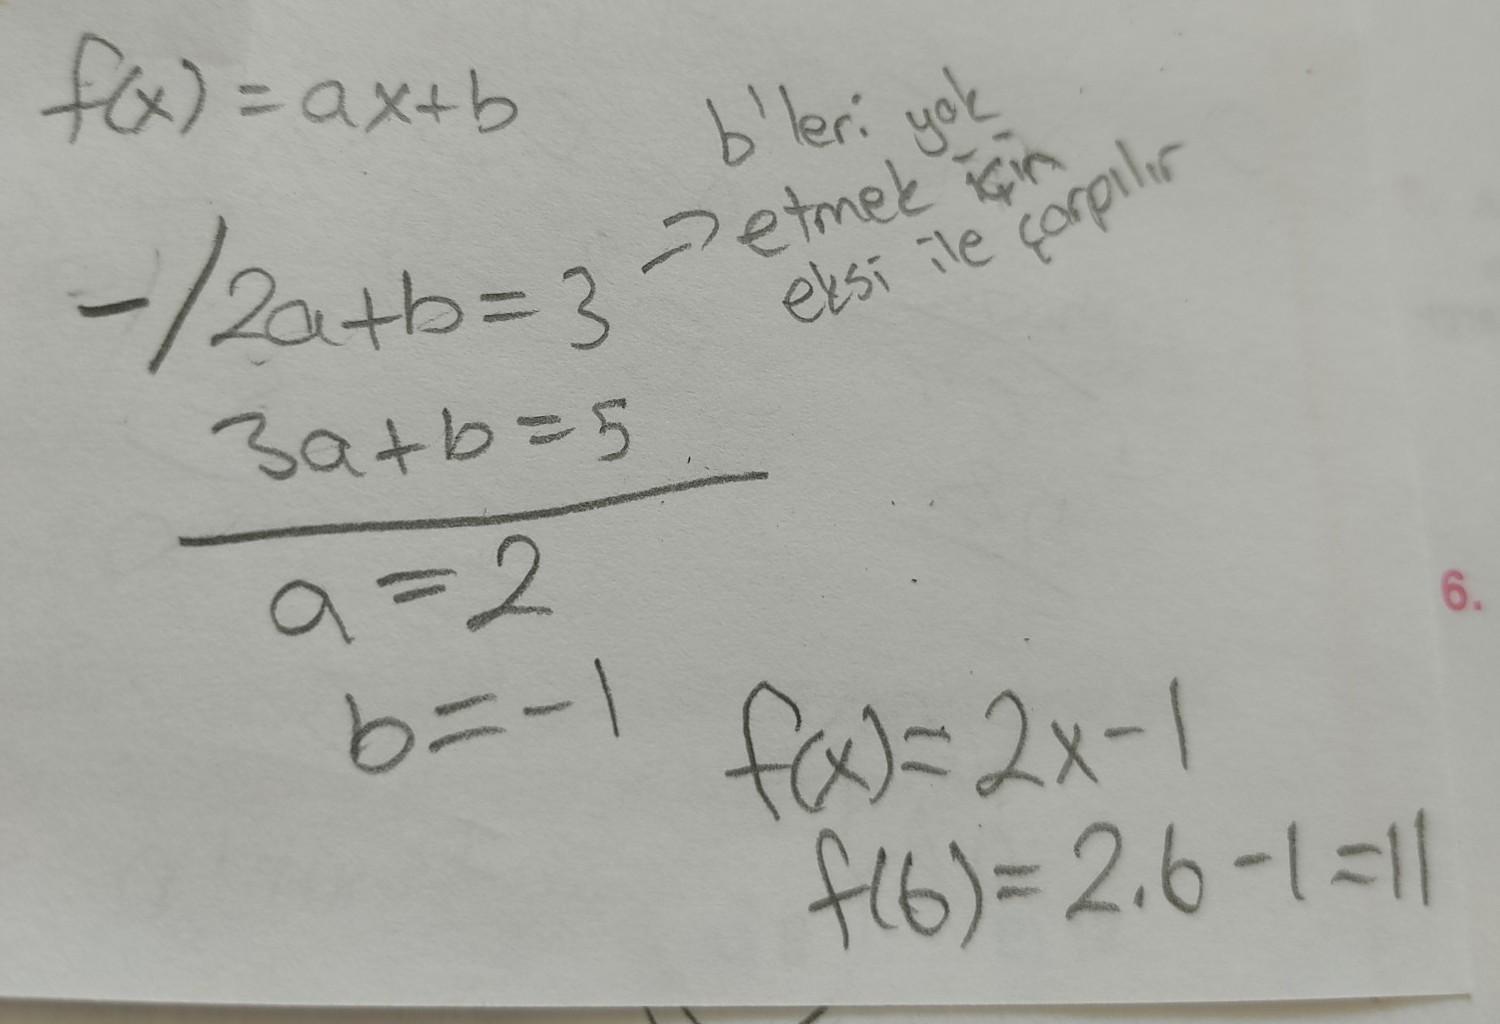 f(x) = ax+b
b'leri yok
-/2a+b=3 => etmek için
eksi ile çarpılır
3a+b=5
a=2
b=-1
f(x)=2x-1
f(6)=2.6-1=11
6.